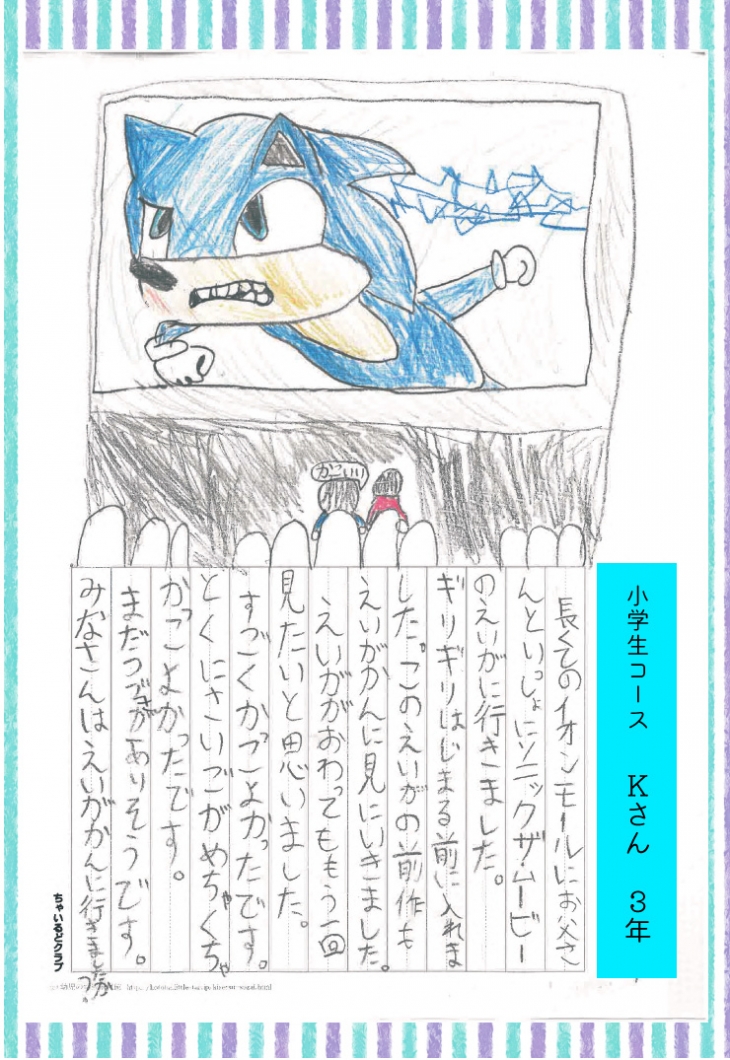 かこいい
小学生コース Kさん 3年
長くてのイオンモールにお父さ
んといっしょにソニックザムービー
のえいがに行きました。
ギリギリはじまる前に入れま
した。このえいがの前作も
えいがかんに見にいきました。
えいががおわってももう一回
見たいと思いました。
すごくかっこよかったです。
とくにさいごがめちゃくちゃ
かっこよかったです。
まだつづきがありそうです。
みなさんはえいがかんに行きましたか。
ちゃいるどクラブ